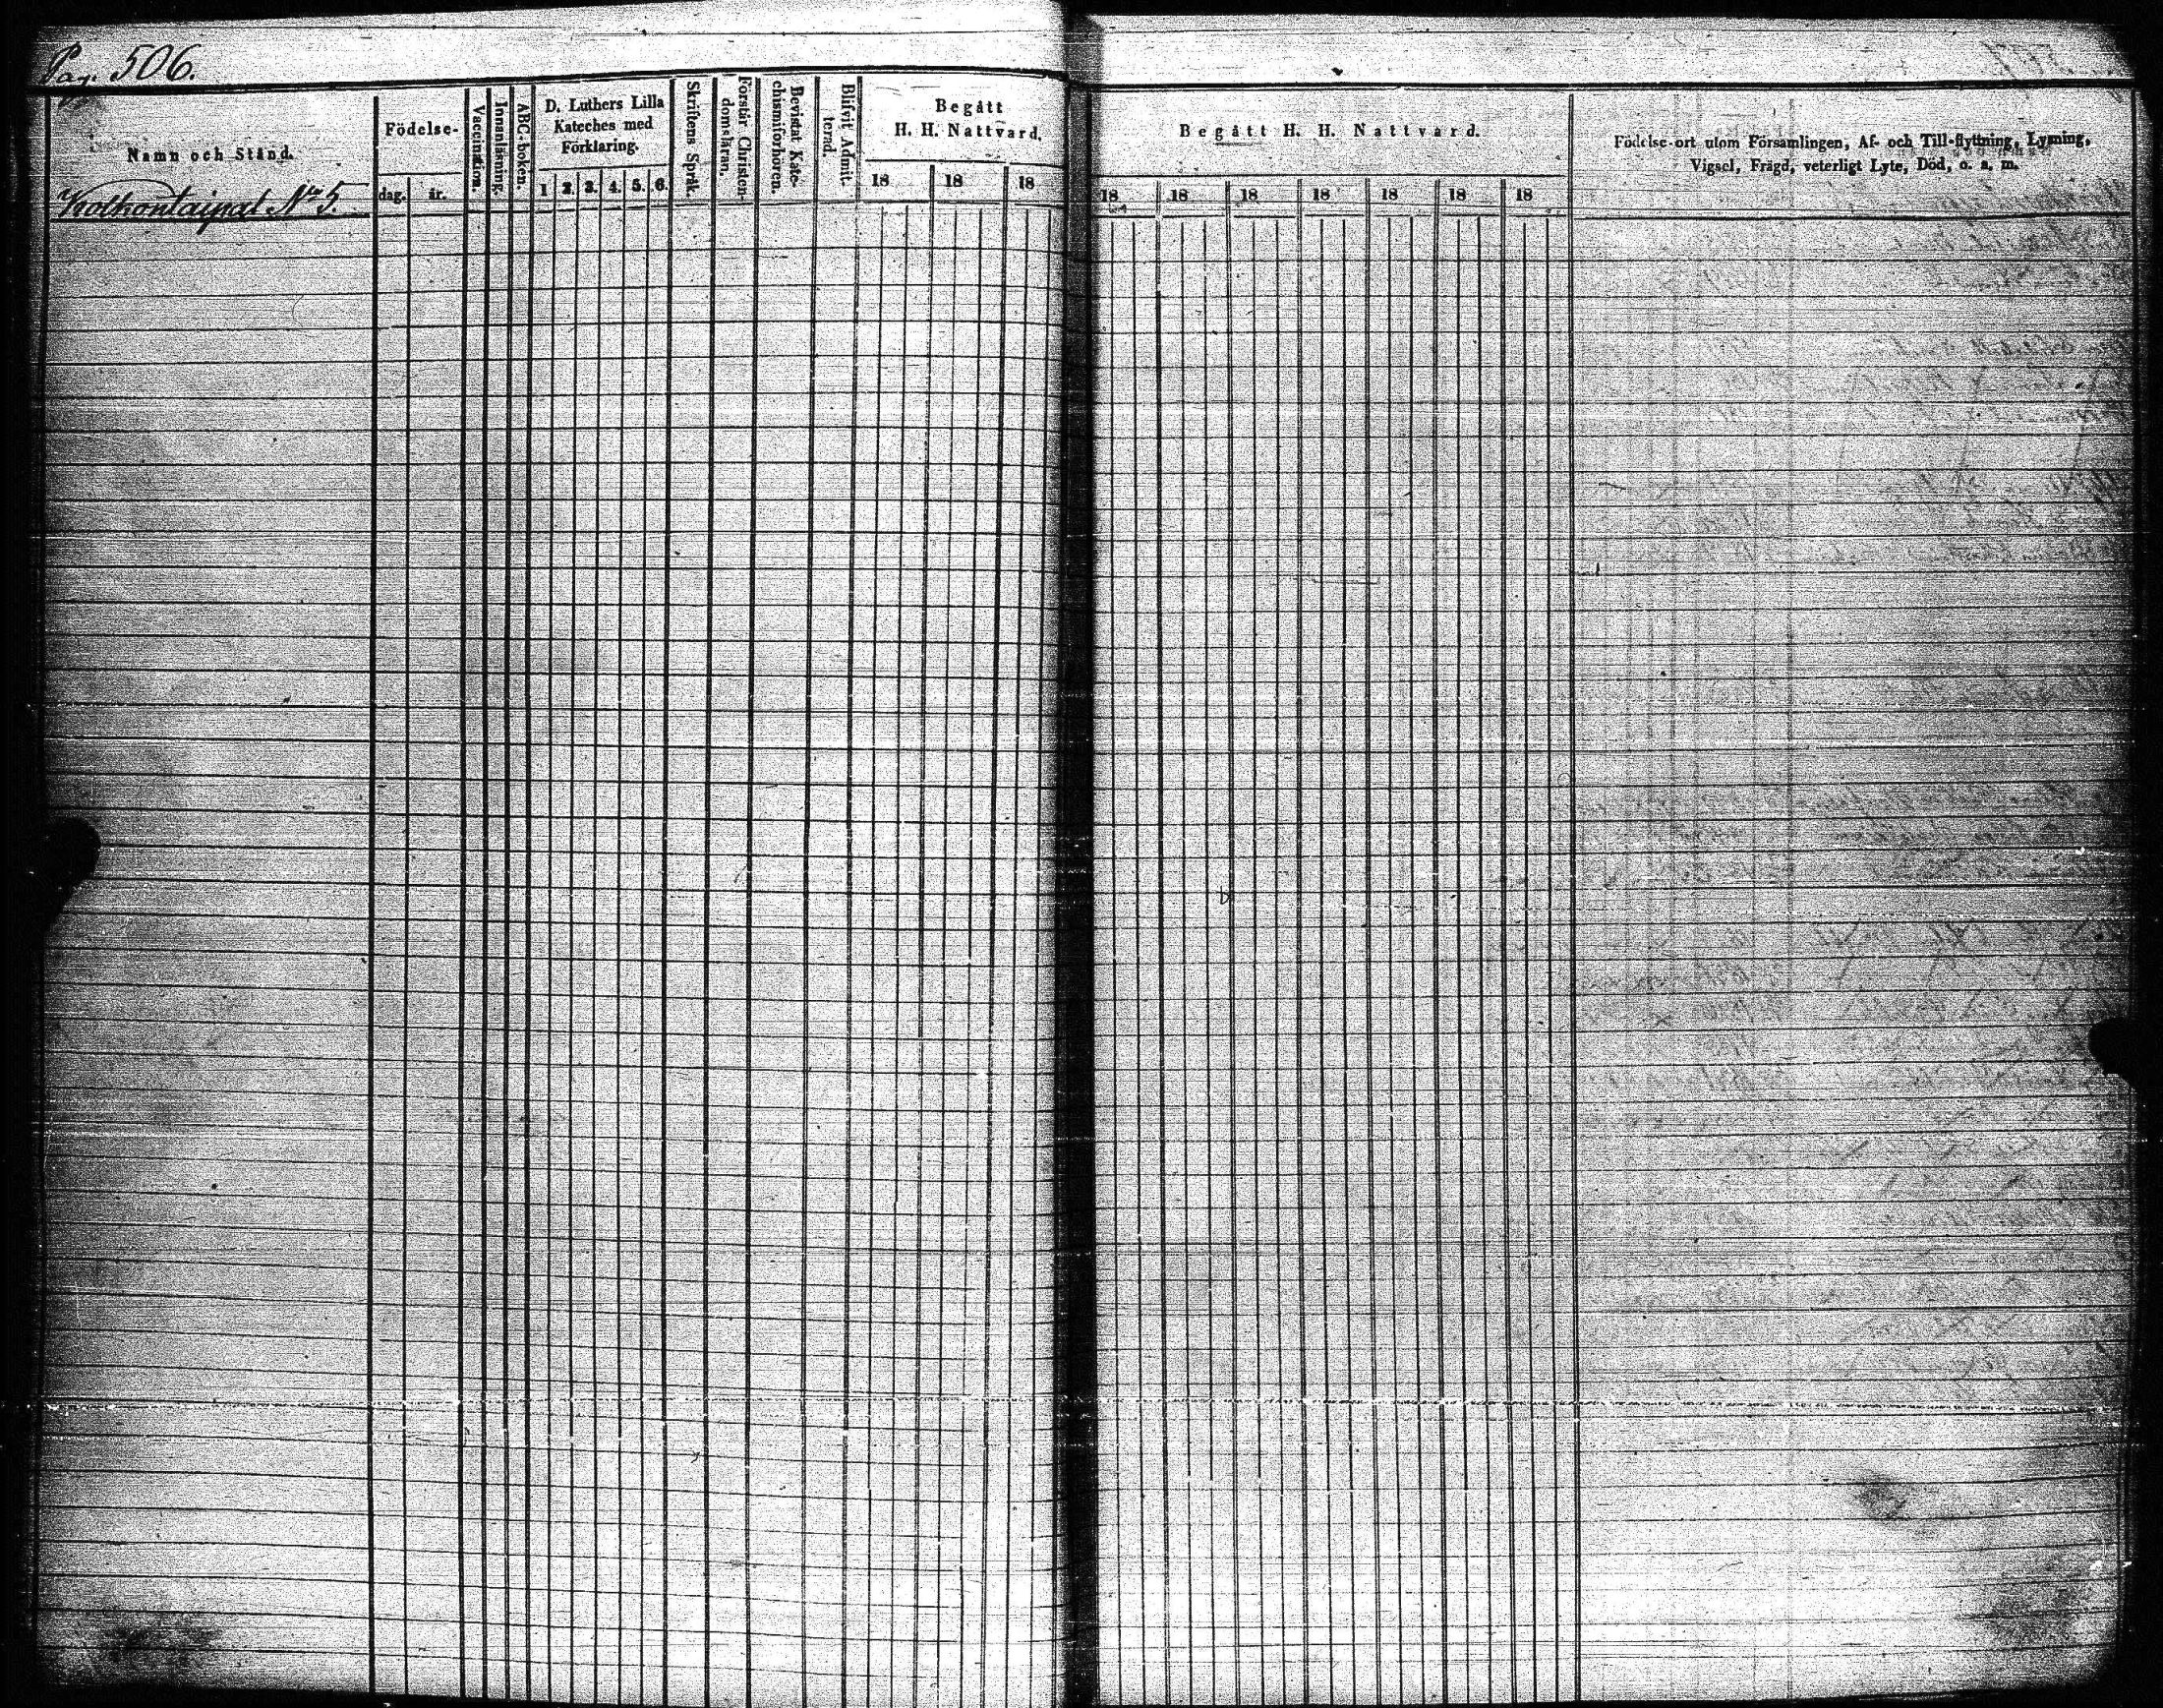 Pag. 506.
Namn och Stånd.
Kolhontaipal No 5.
Födelse-
dag. år.
Vaccination.
Innanläsning.
ABC-boken.
D. Luthers Lilla
Kateches med
Förklaring.
1 2. 3. 4. 5. 6.
Skriftens Språk.
Förstår Christen-
domsläran.
Bevistat Kate-
chismiförhören.
Blifvit Admit-
terad.
Begått
H. H. Nattvard.
18 18 18
Begått H. H. Nattvard.
18 18 18 18 18 18 18
Födelse-ort utom Församlingen, Af- och Till-flyttning, Lysning,
Vigsel, Frägd, veterligt Lyte, Död, o. s. m.